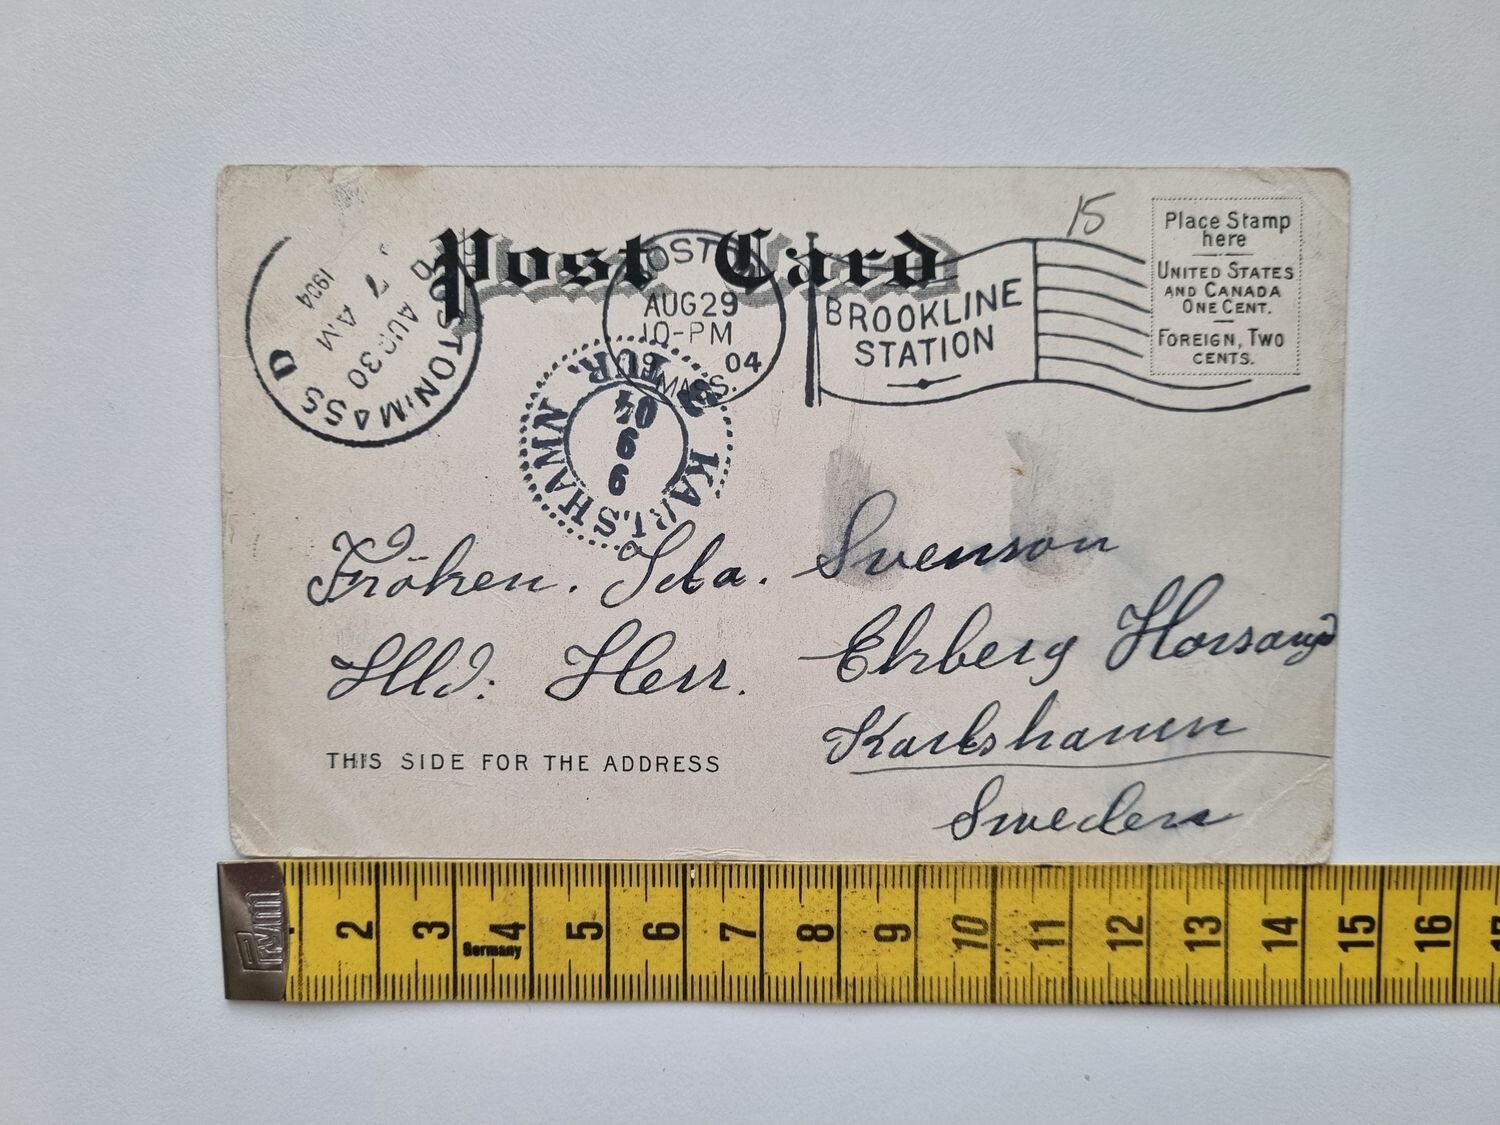 Post Card
15
Place Stamp
here
UNITED STATES
AND CANADA
ONE CENT.
FOREIGN, TWO
CENTS.
BOSTON, MASS D
AUG 30
7 AM
1904
BOSTON
AUG 29
10-PM
1904
MASS.
BROOKLINE
STATION
KARLSHAMN
TUR.
9 9
04
Fröken. Ida. Svenson
Herr. Ekberg
Karlshamn
Sweden
THIS SIDE FOR THE ADDRESS
2 3 4 5 6 7 8 9 10 11 12 13 14 15 16
Germany
Prym